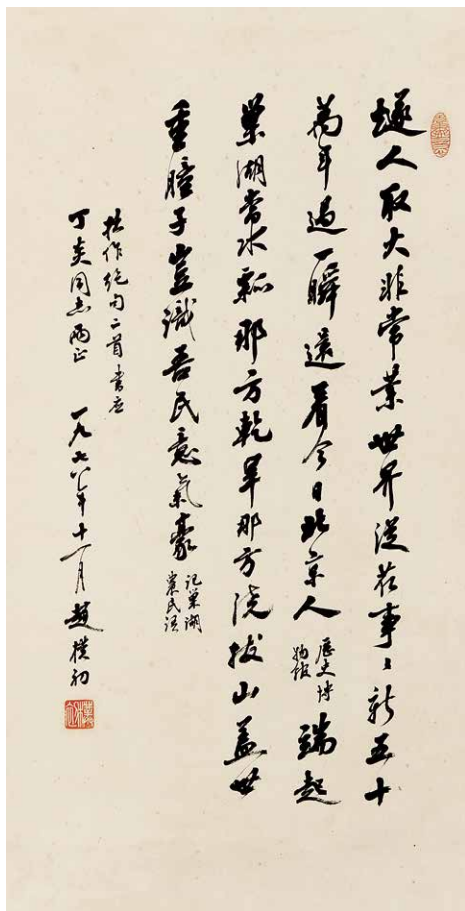 燧人取火非常業世界從茲事〻新五十
萬年過一瞬還看今日北京人
歷史博
物館
端起
巢湖當水瓢那方乾旱那方澆拔山蓋世
重瞳子豈識吾民意氣豪
記巢湖
農民語
拙作絕句二首書應
同志兩正 一九七八年十一月 趙樸初